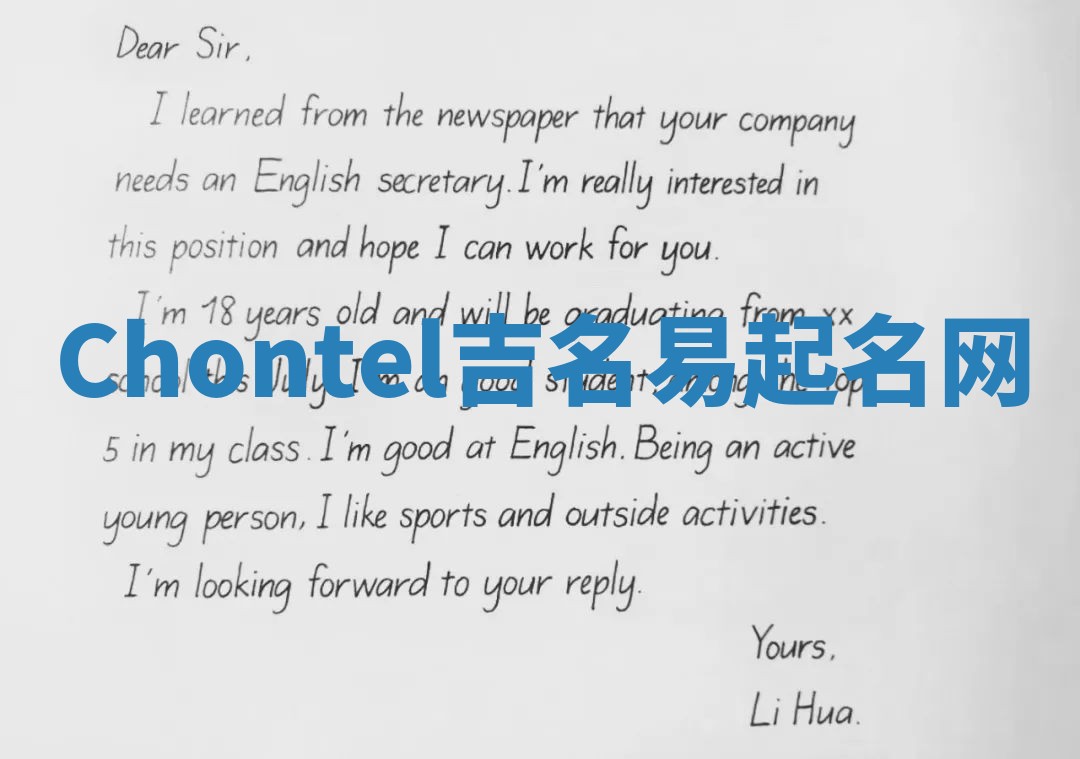 Dear Sir,
I learned from the newspaper that your company
needs an English secretary. I'm really interested in
this position and hope I can work for you.
I'm 18 years old and will be graduating from xx
Chontel吉名易起名网
school this July. I'm an good student among the top
5 in my class. I'm good at English. Being an active
young person, I like sports and outside activities.
I'm looking forward to your reply.
Yours,
Li Hua.